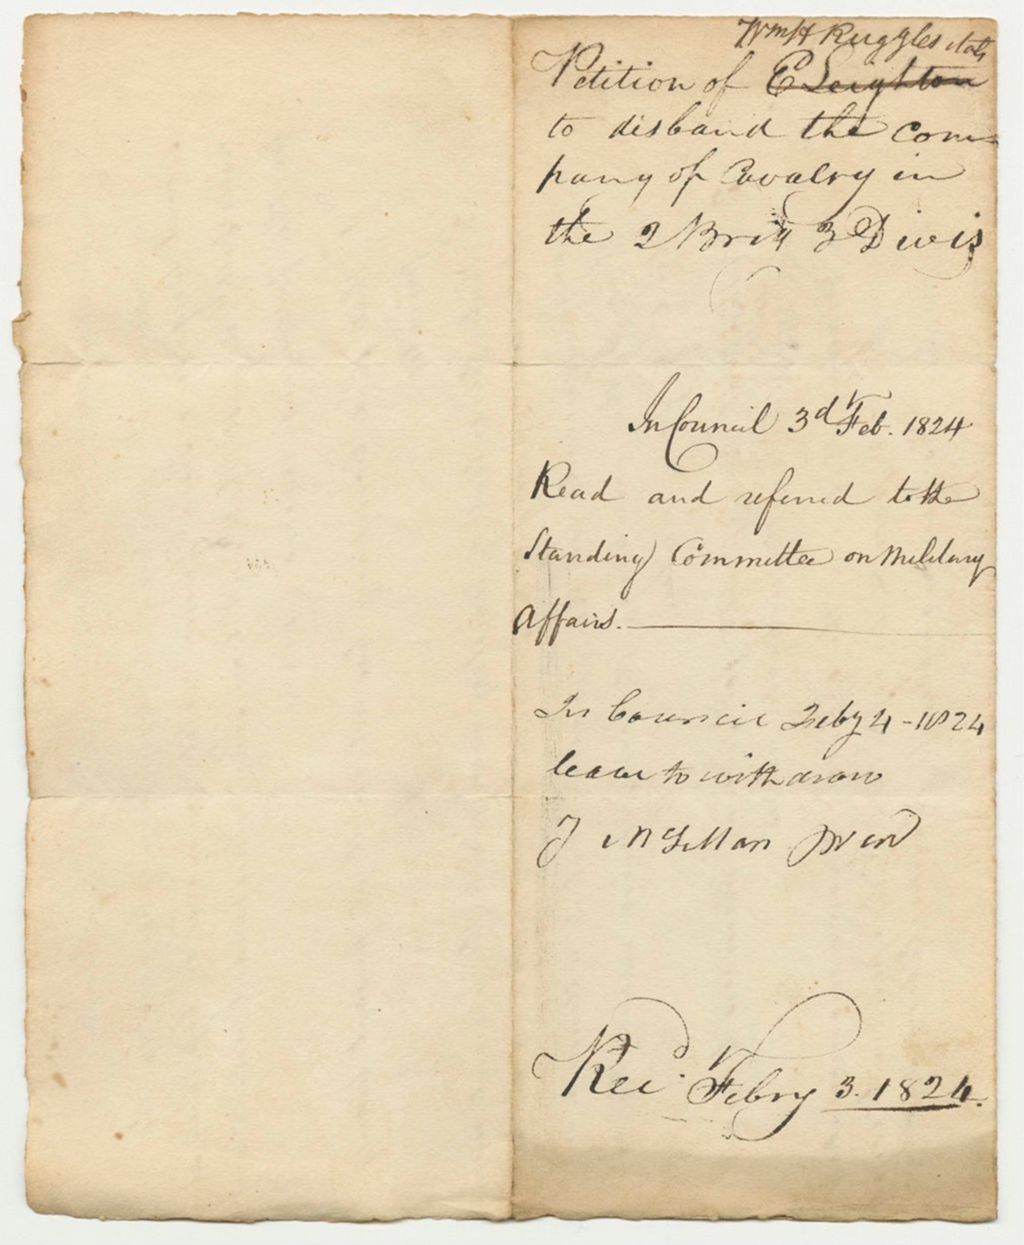 Wm H Ruggles et als
Petition of E Leighton
to disband the com-
pany of Cavalry in
the 2 Brig 3 Divis
In Council 3d Feb. 1824
Read and referred to the
Standing Committee on Military
Affairs.
In Council Feby 4 - 1824
leave to withdraw
Recd. Febry 3. 1824.